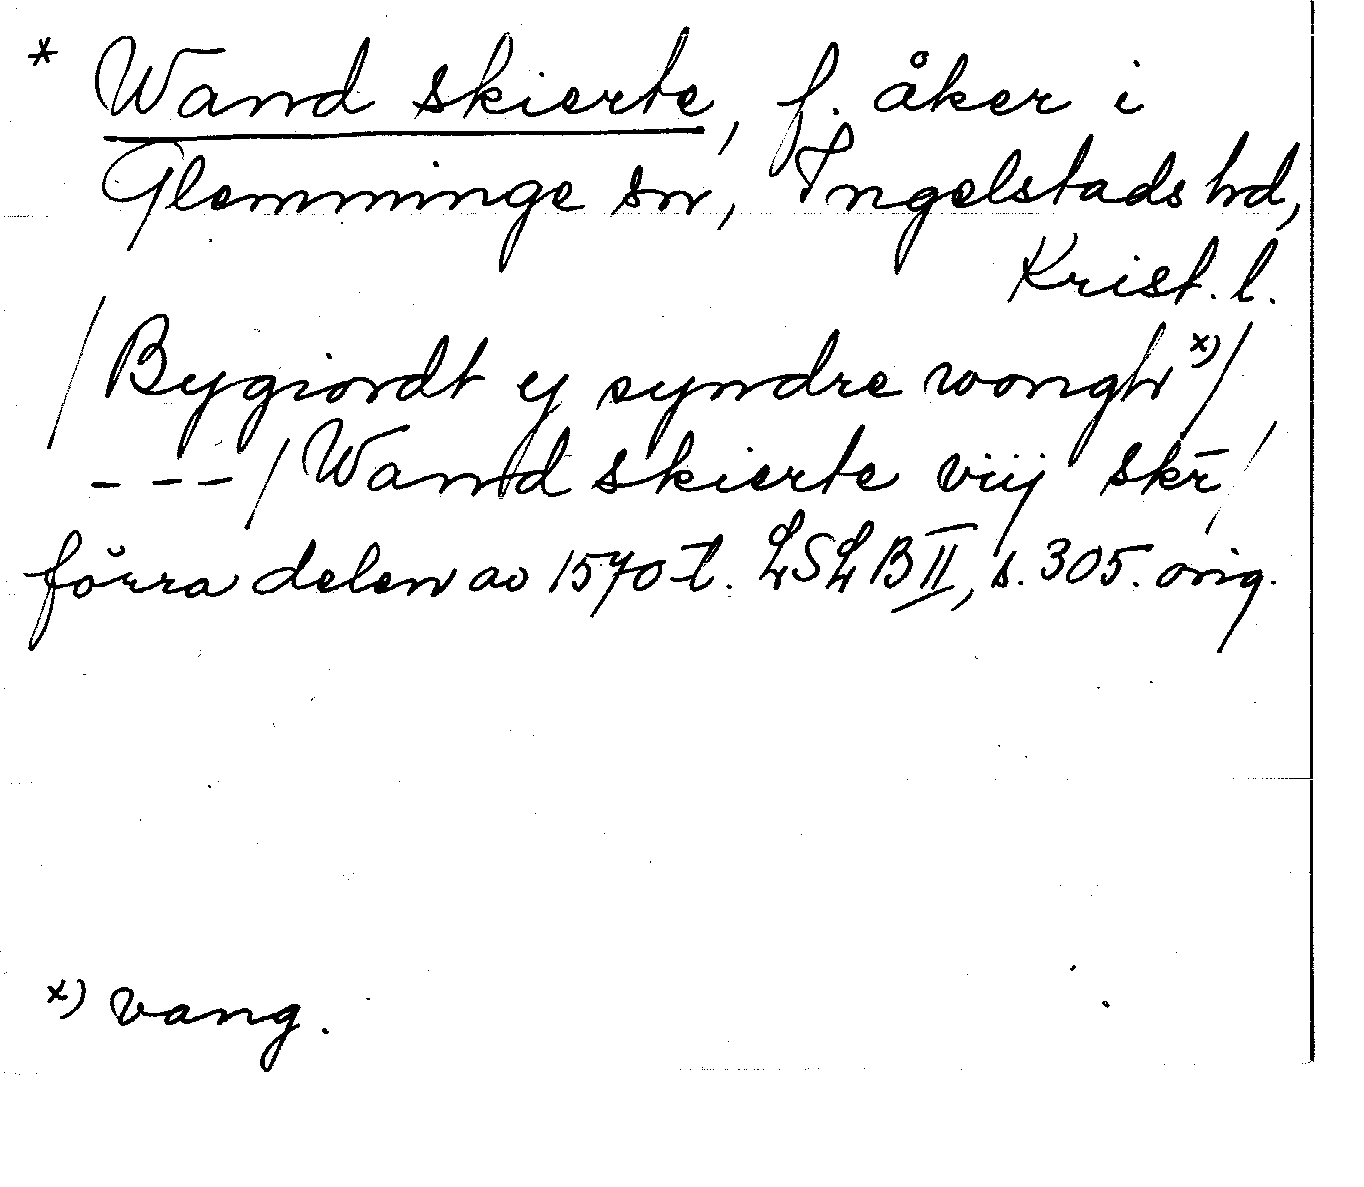 * Wand skierte, f. åker i
Glemminge sn, Ingelstads hd,
Krist. l.
/Bygiordt y syndre wongh x)/
---/Wand skierte viij skr̄/
förra delen av 1570-t. LSLB II, s. 305. orig.
x) vang.